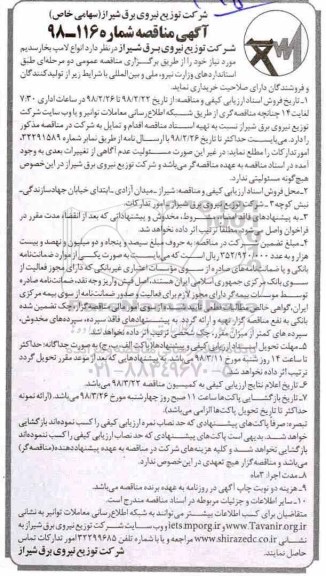 شرکت توزیع نیروی برق شیراز (سهامی خاص)
آگهی مناقصه شماره ۱۱۶-۹۸
شرکت توزیع نیروی برق شیراز در نظر دارد انواع لامپ بخار سدیم
مورد نیاز خود را از طریق برگزاری مناقصه عمومی دو مرحله‌ای طبق
استانداردهای وزارت نیرو، ملی و بین المللی با شرایط زیر از تولیدکنندگان
و فروشندگان دارای صلاحیت خریداری نماید.
۱- تاریخ فروش اسناد ارزیابی کیفی و مناقصه: از تاریخ ۹۸/۲/۲۲ تا ۹۸/۲/۲۶ در ساعات اداری ۷/۳۰
لغایت ۱۴ چنانچه مناقصه گری از طریق شبکه اطلاع رسانی معاملات توانیر و یا وب سایت شرکت
توزیع نیروی برق شیراز نسبت به تهیه اسناد مناقصه اقدام و تمایل به شرکت در مناقصه مذکور
را دارد، می‌بایست حداکثر تا تاریخ ۹۸/۲/۲۶ با ارسال نامه از طریق نمابر شماره ۳۲۲۹۱۵۸۹
امور تدارکات را مطلع نماید، در غیر این صورت مسئولیت عدم آگاهی از تغییرات بعدی به وجود
آمده در اسناد مناقصه به عهده مناقصه گر می‌باشد و شرکت توزیع نیروی برق شیراز در این خصوص
هیچ گونه مسئولیتی ندارد.
۲- محل فروش اسناد ارزیابی کیفی و مناقصه: شیراز - میدان آزادی - ابتدای خیابان جهاد سازندگی -
نبش کوچه ۲ - شرکت توزیع نیروی برق شیراز - امور تدارکات
۳- به پیشنهادهای فاقد امضاء، مشروط، مخدوش و پیشنهاداتی که بعد از انقضاء مدت مقرر در
فراخوان واصل می‌شود مطلقاً ترتیب اثر داده نخواهد شد.
۴- مبلغ تضمین شرکت در مناقصه: به حروف مبلغ سیصد و پنجاه و دو میلیون و نهصد و بیست
هزار و به عدد ۳۵۲/۹۲۰/۰۰۰ ریال است که می‌بایست به صورت یکی از موارد ضمانت‌نامه
بانکی و یا ضمانت‌نامه‌های صادره از سوی مؤسسات اعتباری غیربانکی که دارای مجوز فعالیت از
سوی بانک مرکزی جمهوری اسلامی ایران هستند، اصل فیش واریز وجه نقد، ضمانت‌نامه صادره
توسط مؤسسات بیمه گر دارای مجوز لازم برای فعالیت و صدور ضمانت‌نامه از سوی بیمه مرکزی
بانکی به نفع مناقصه گزار تهیه و ارائه گردد. به پیشنهادهای فاقد سپرده، سپرده‌های مخدوش،
سپرده‌های کمتر از میزان مقرر، چک شخصی ترتیب اثر داده نخواهد شد.
تا ساعت ۱۴ روز شنبه مورخ ۹۸/۳/۱۱ می‌باشد. به پیشنهادهایی که بعد از موعد مقرر تحویل گردد
ترتیب اثر داده نخواهد شد.
۰۲۱-۸۸۳۴۹۶۷۰-۵
۶- تاریخ اعلام نتایج ارزیابی کیفی به کمیسیون مناقصه ۹۸/۳/۲۲ می‌باشد.
۷- تاریخ بازگشایی پاکت‌ها ساعت ۱۱ صبح روز چهارشنبه مورخ می‌باشد. (ارائه نمونه
حداکثر تا تاریخ تحویل پاکت‌ها الزامی می‌باشد).
تبصره: صرفاً پاکت‌های پیشنهادی که حد نصاب نمره ارزیابی کیفی را کسب نموده‌اند بازگشایی
خواهد شد. بدیهی است پاکت‌های پیشنهادی که حد نصاب ارزیابی کیفی را کسب ننموده‌اند
بازگشایی نخواهد شد و کلیه هزینه‌های شرکت در مناقصه به عهده پیشنهاددهنده (مناقصه گر)
می‌باشد و مناقصه گزار هیچ تعهدی در این خصوص ندارد.
۸- مدت اجرا: ۳ ماه
۹- هزینه دو نوبت چاپ آگهی در روزنامه به عهده برنده مناقصه می‌باشد.
۱۰- سایر اطلاعات و جزئیات مربوطه در اسناد مناقصه مندرج است.
متقاضیان برای کسب اطلاعات بیشتر می‌توانند به شبکه اطلاع رسانی معاملات توانیر به نشانی
www.Tavanir.org.ir و iets.mporg.ir و وب سایت شرکت توزیع نیروی برق شیراز به
نشانی www.shirazedc.co.ir مراجعه و یا با شماره تلفن ۳۲۲۹۹۶۸۵ امور تدارکات تماس
حاصل نمایند.
شرکت توزیع نیروی برق شیراز